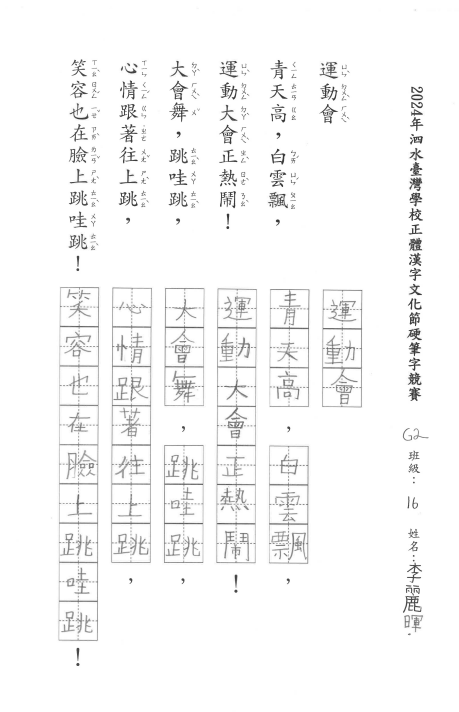 2024年泗水臺灣學校正體漢字文化節硬筆字競賽 G2 班級：16 姓名：李麗暉.
運動會
青天高，白雲飄，
運動大會正熱鬧！
大會舞，跳哇跳，
心情跟著往上跳，
笑容也在臉上跳哇跳！
運動會
青天高，白雲飄，
運動大會正熱鬧！
大會舞，跳哇跳
心情跟著往上跳，
笑容也在臉上跳哇跳！